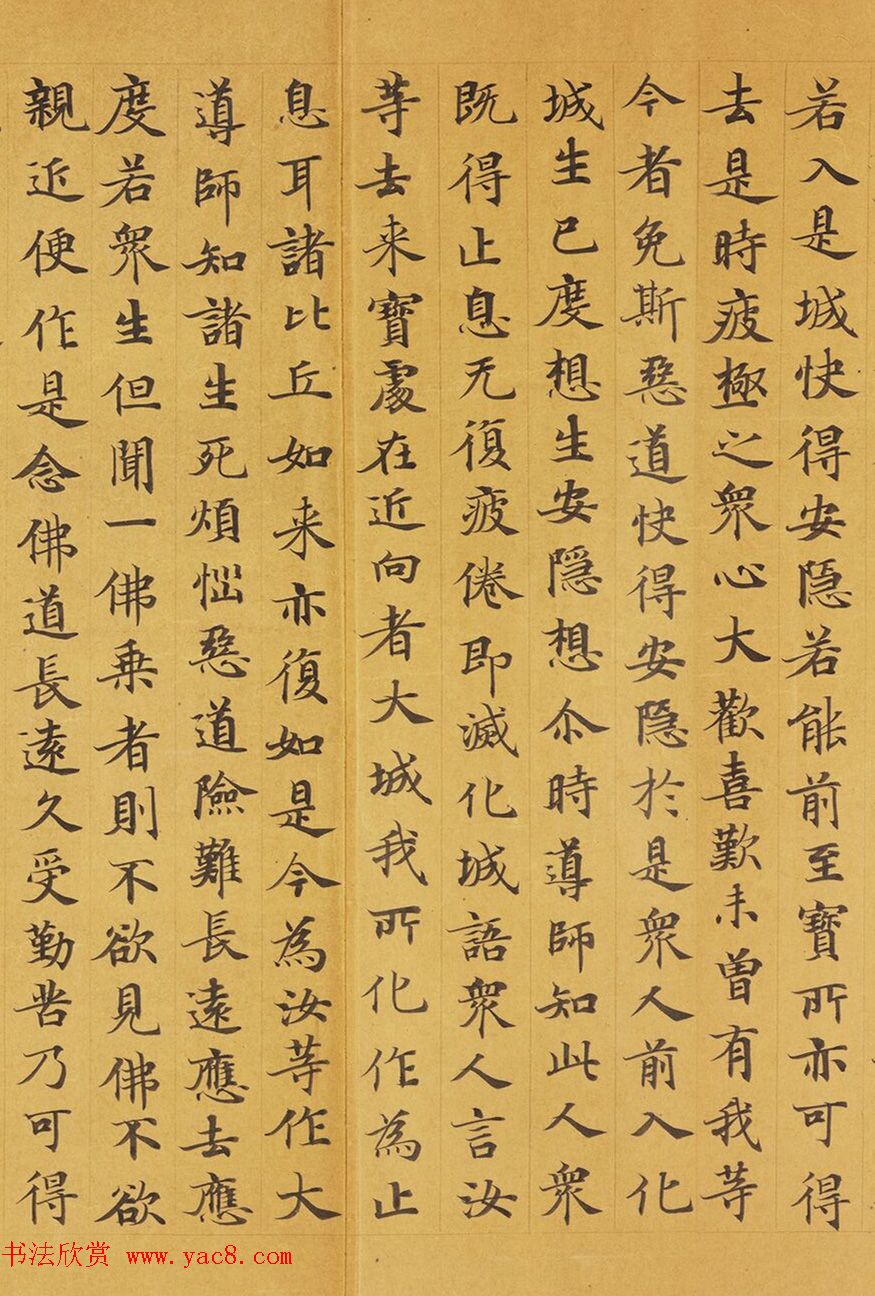 若入是城快得安隱若能前至寶所亦可得
去是時疲極之衆心大歡喜歎未曽有我等
今者免斯惡道快得安隱於是衆人前入化
城生已度想生安隱想尒時導師知此人衆
既得止息无復疲倦即滅化城語衆人言汝
等去来寶處在近向者大城我所化作為止
息耳諸比丘如来亦復如是今為汝等作大
導師知諸生死煩惱惡道險難長遠應去應
度若衆生但聞一佛乗者則不欲見佛不欲
親近便作是念佛道長遠久受勤苦乃可得
书法欣赏 www.yac8.com